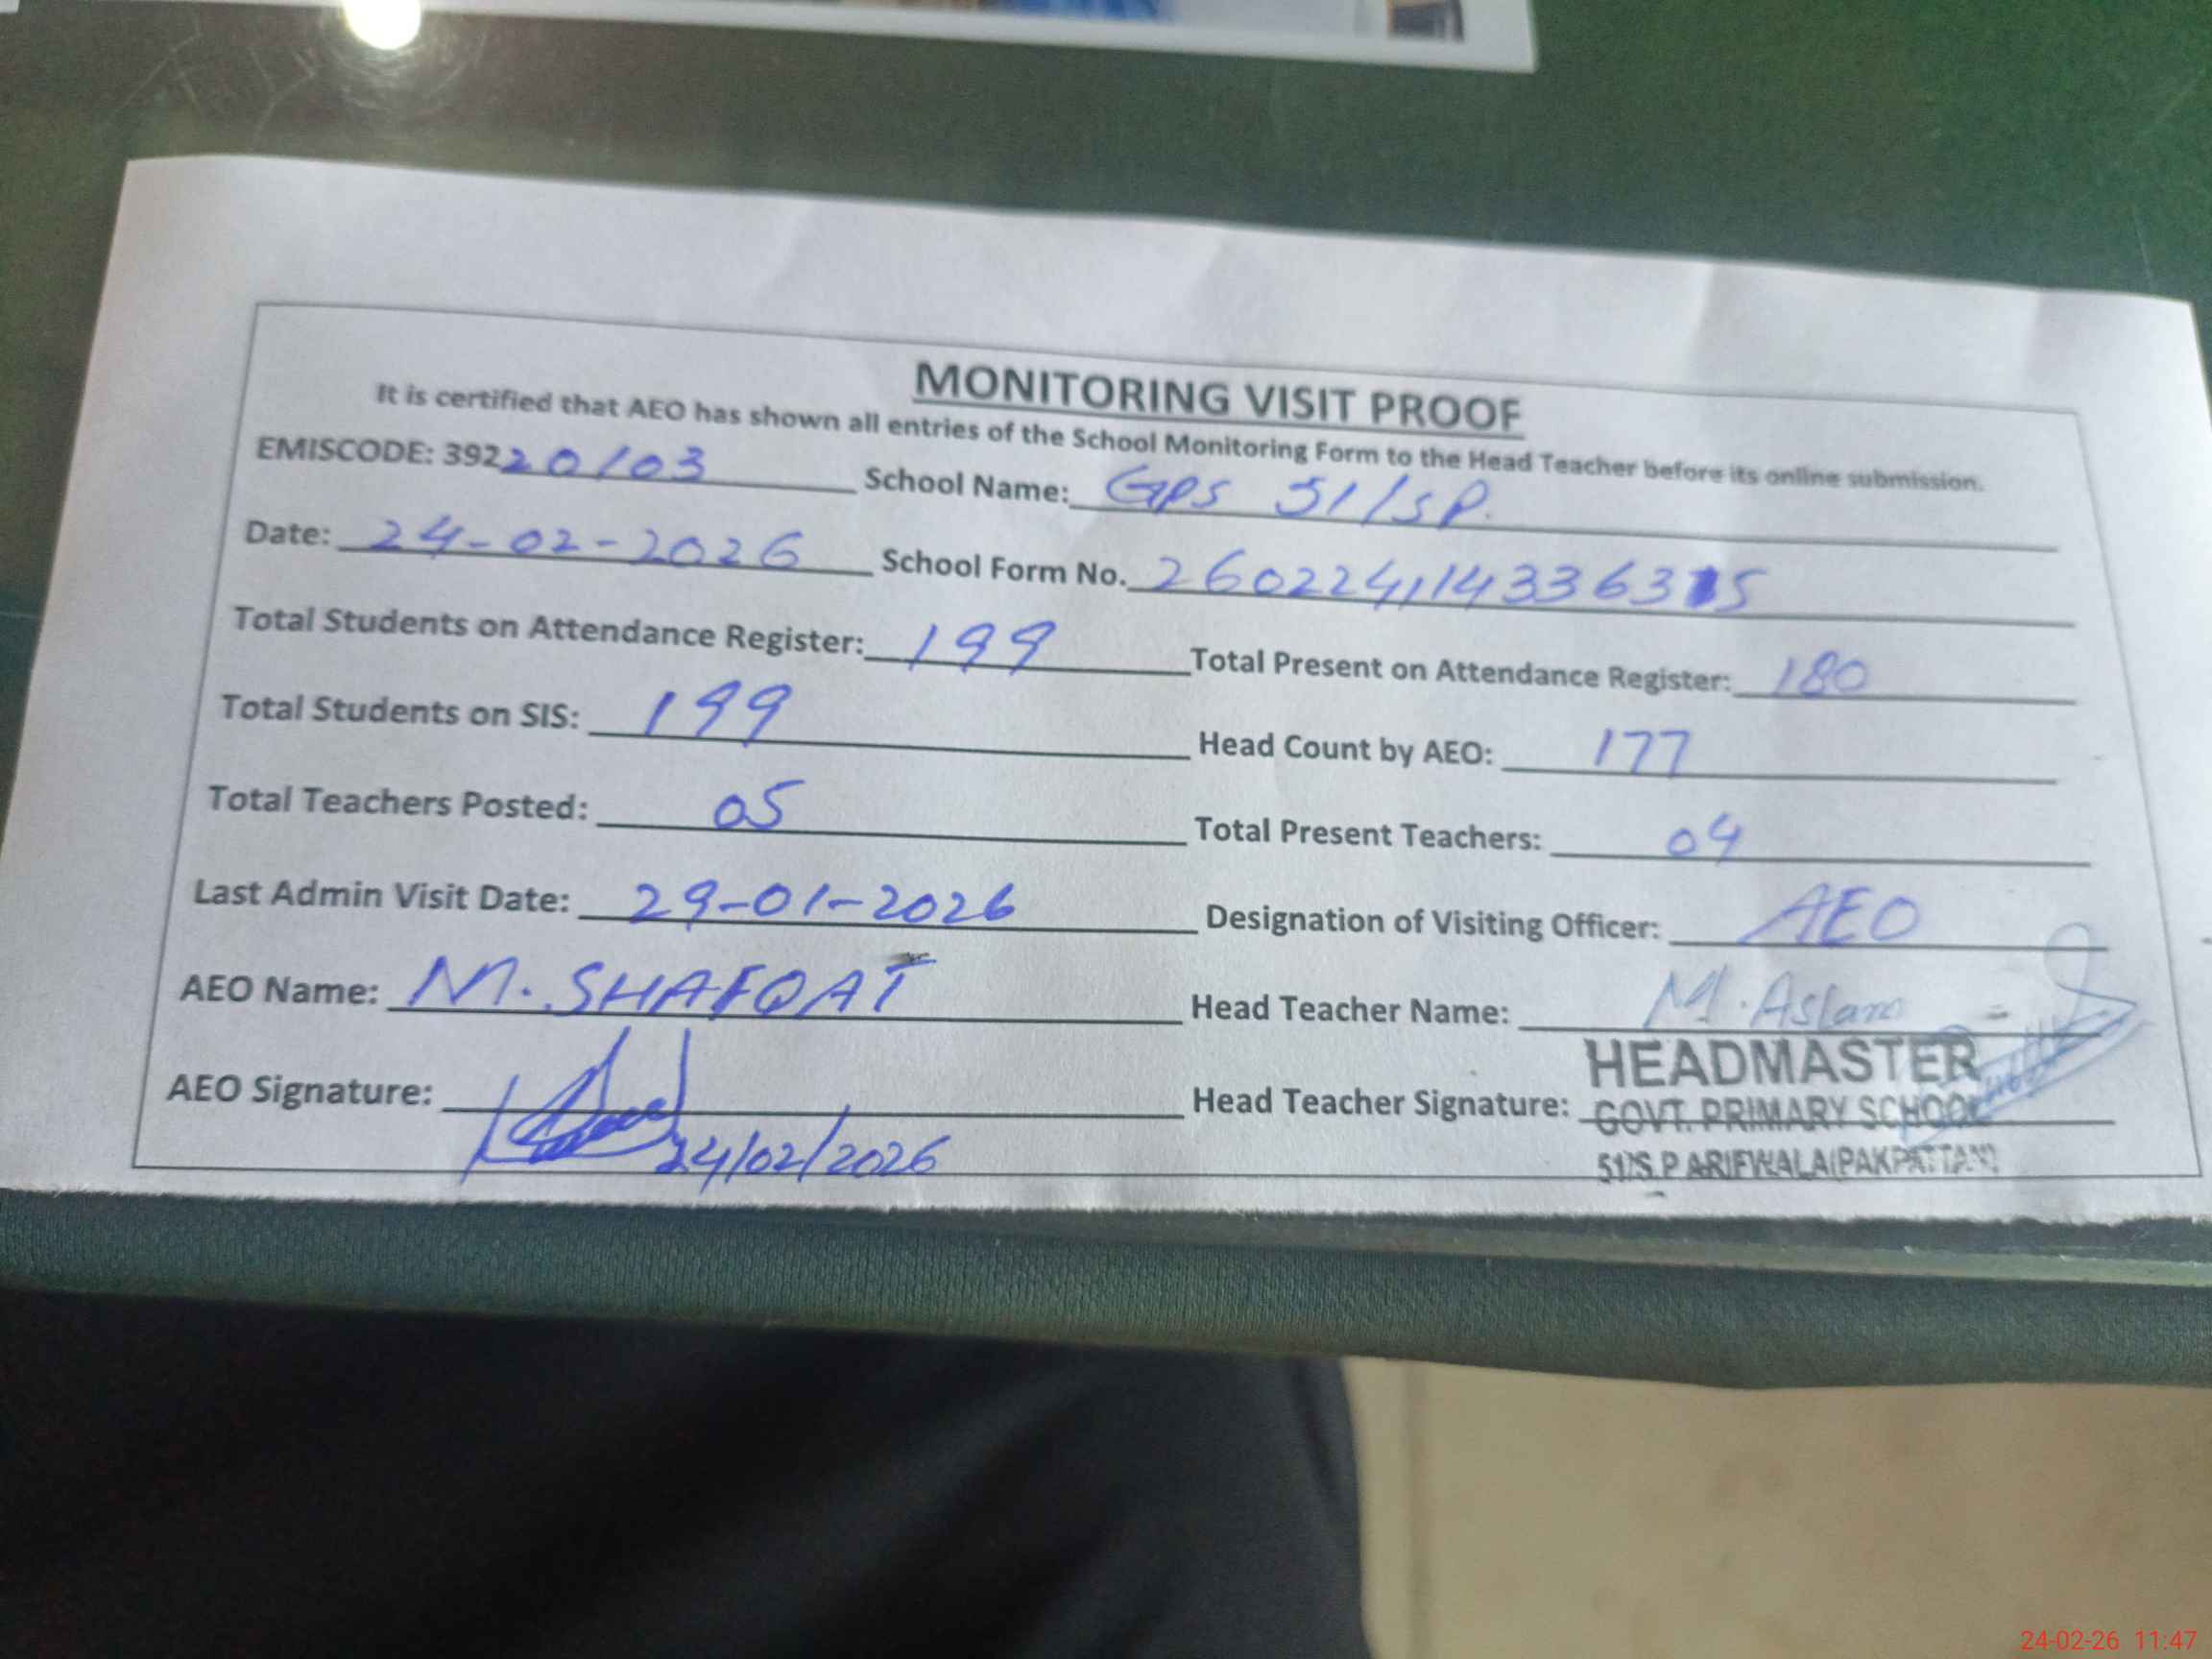 MONITORING VISIT PROOF
It is certified that AEO has shown all entries of the School Monitoring Form to the Head Teacher before its online submission.
EMISCODE: 39220103 School Name: GPS 51/SP.
Date: 24-02-2026 School Form No.
Total Students on Attendance Register: 199 Total Present on Attendance Register: 180
Total Students on SIS: 199 Head Count by AEO: 177
Total Teachers Posted: 05 Total Present Teachers: 04
Last Admin Visit Date: 29-01-2026 Designation of Visiting Officer: AEO
AEO Name: M. SHAFQAT Head Teacher Name: M. Aslam
AEO Signature: Head Teacher Signature:
24/02/2026
HEADMASTER
GOVT. PRIMARY SCHOOL
51/S.P ARIFWALA(PAKPATTAN)
24-02-26 11:47